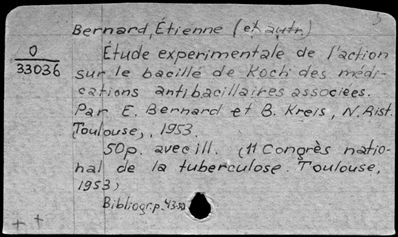 Bernard, Étienne (et autr.)
O
33036
Étude experimentale de l'action
sur le bacille de Koch des médi-
cations antibacillaires associées.
Par E. Bernard et B. Kreis, N. Rist.
Toulouse, 1953.
50p. avec ill. (11 Congrès natio-
nal de la tuberculose. Toulouse,
1953)
Bibliogr. p. 43-50
+ +